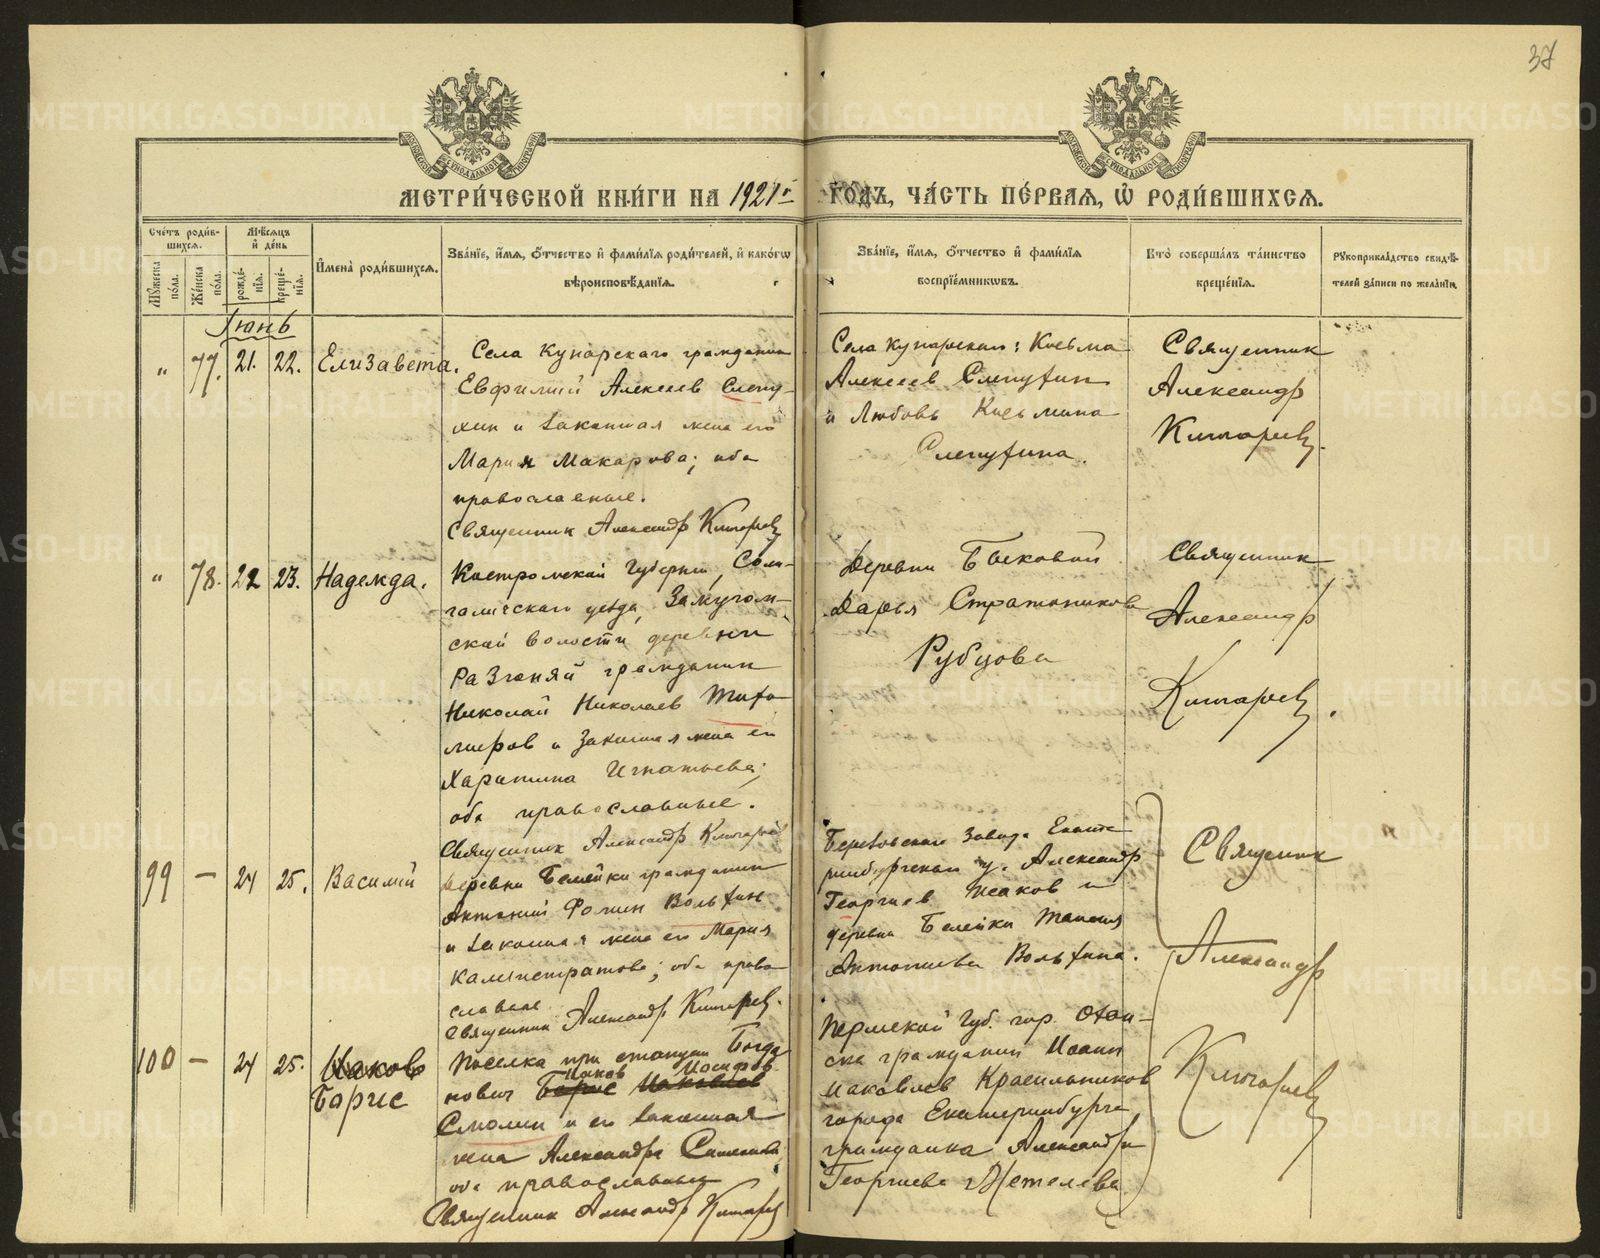 37
МОСКОВСКОЙ СѴНОДАЛЬНОЙ ТИПОГРАФІИ
МОСКОВСКОЙ СѴНОДАЛЬНОЙ ТИПОГРАФІИ
МЕТРИ́ЧЕСКОЙ КНИ́ГИ НА 1921 г ГО́ДЪ, ЧА́СТЬ ПЕ́РВАЯ, Ѽ РОДИ́ВШИХСЯ.
Сче́тъ роди́в-
шихся.
Мѣ́сяцъ
и҆ де́нь
Мꙋ́жеска по́ла.
Же́нска по́ла.
рожде́-
нїя.
креще́-
нїя.
И҆мена̀ роди́вшихся.
Зва́нїе, и҆́мя, ѻ҆́тчество и҆ фами́лїя роди́телей, и҆ како́гѡ
вѣроисповѣ́данїя.
Зва́нїе, и҆́мя, ѻ҆́тчество и҆ фами́лїя
воспрїе́мникѡвъ.
Кто̀ соверша́лъ та́инство
креще́нїя.
Рꙋкоприкла́дство свидѣ́-
телей за́писи по жела́нїю.
Іюнь
" 77. 21. 22. Елизавета.
Села Кунарскаго гражданин
Евфимий Алексеев Слепу-
хин и законная жена его
Мария Макарова; оба
православные.
Священник Александр Ключарев
Села Кунарскаго: Косьма
Алексеев Слепухин
и Любовь Косьмина
Слепухина.
Священник
Александр
Ключарев.
" 78. 22 23. Надежда.
Костромской Губернии, Соли-
галичскаго уезда,
ской волости деревни
гражданин
Николай Николаев Тихо
миров и законная жена его
Харитина Игнатьева;
оба православные.
Священник Александр Ключарев
Деревни Быковой
Дарья Стратоникова
Рубцова
Священник
Александр
Ключарев.
99 — 24 25. Василий
Деревни Белейки гражданин
Антоний Фомин Вольхин
и законная жена его Мария
Калистратова; оба право
славные
Священник Александр Ключарев.
Березовскаго Завода Екате
ринбургскаго у. Александр
Георгиев Исаков и
деревни Белейки Таисия
Антониева Вольхина.
Священник
Александр
Ключарев
100 — 24 25. Иаков
Борис
Поселка при станции Богда
нович Борис Иаковлев
Иаков Иосифов
Смолин и его законная
жена Александра Симонова
оба православные
Священник Александр Ключарев
Пермской Губ. гор. Охан-
ска гражданин Иоанн
Иаковлев Красильников
города Екатеринбурга
гражданка Александра
Георгиева Метелева
METRIKI.GASO-URAL.RU